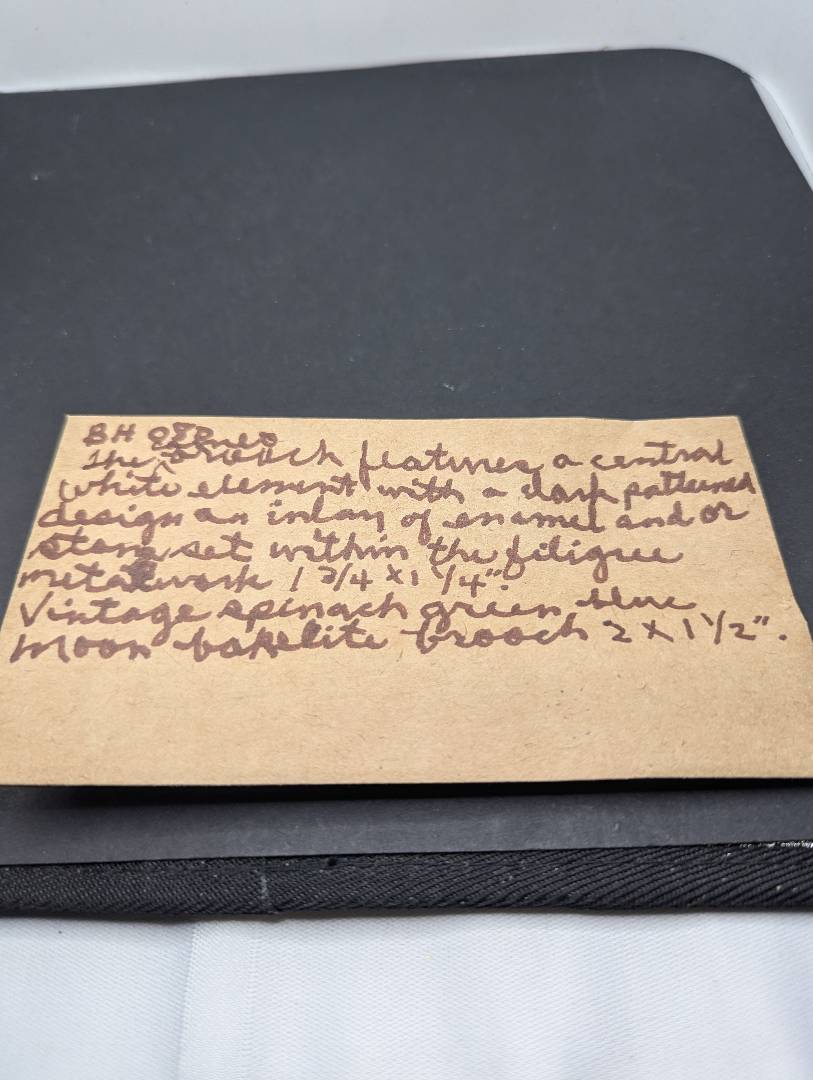 BH
The ^ brooch features a central
white element with a dark patterned
design an inlay of enamel and or
stone set within the filigree
metalwork 1 3/4 x 1 1/4"
Vintage spinach green blue
moon bakelite brooch 2 x 1 1/2".